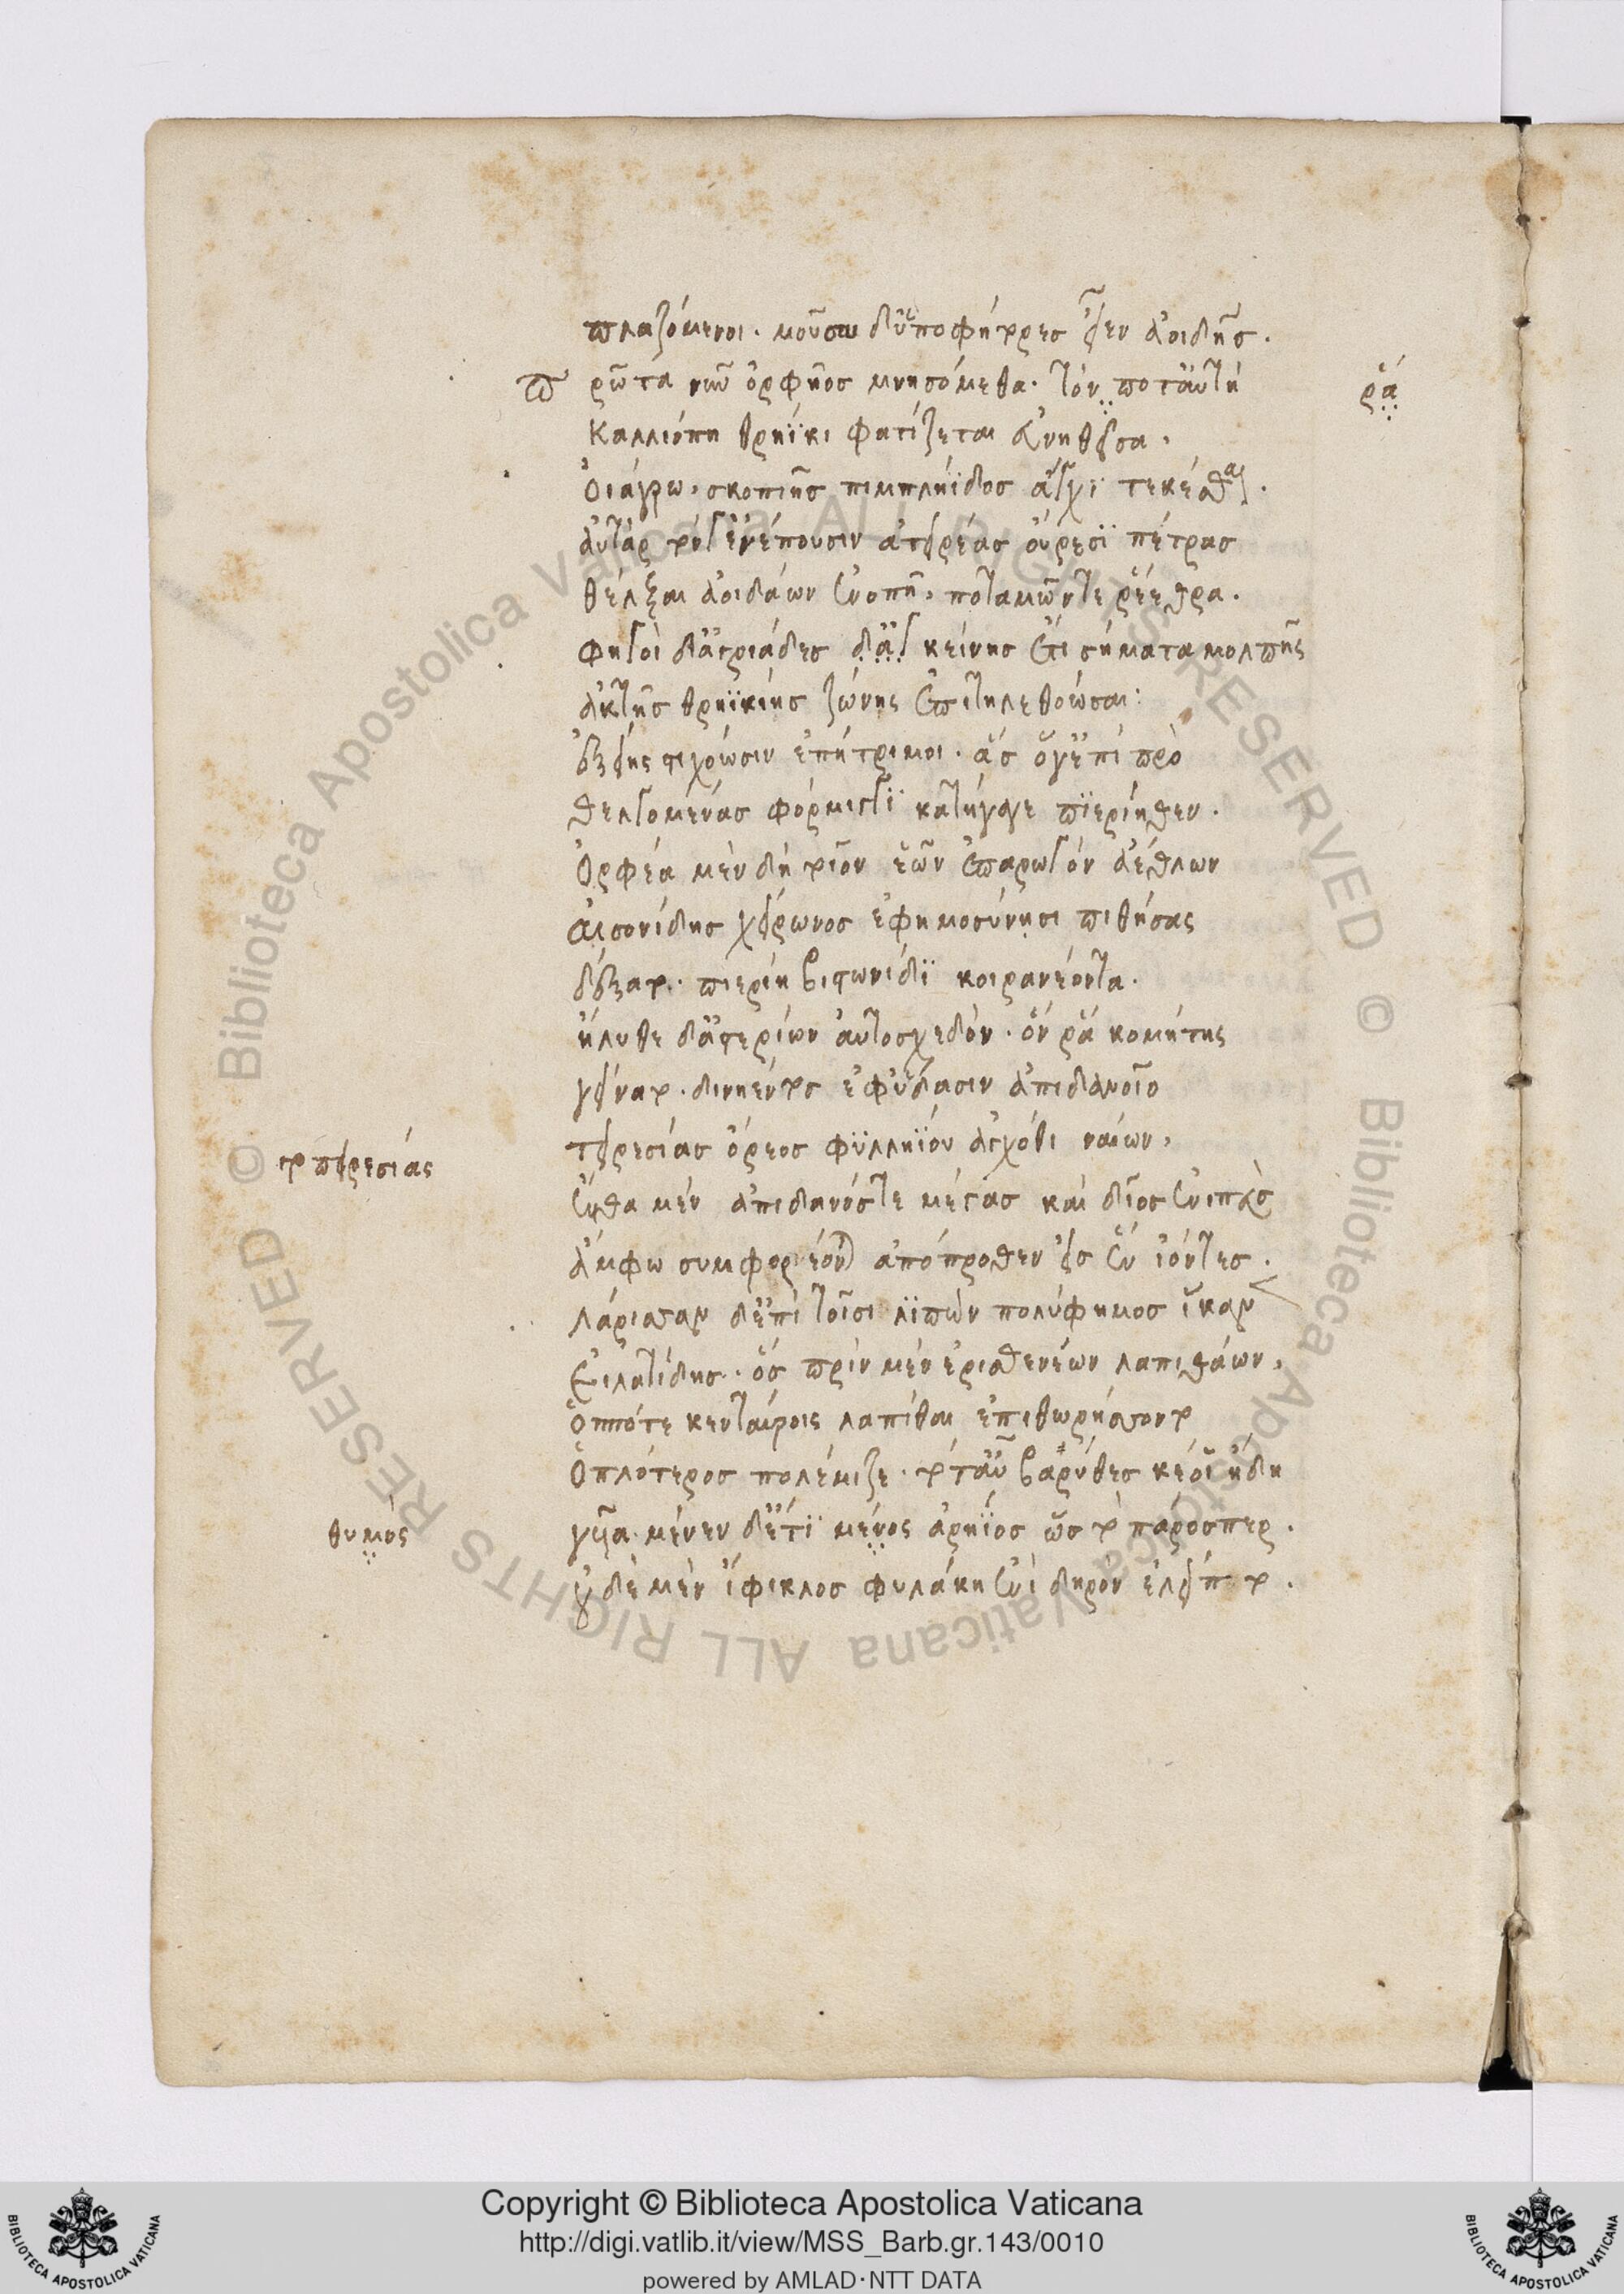 πλαζόμενοι. μοῦσαι δ' ὑποφήτορες εἶεν ἀοιδῆς.
Πρῶτά νυν ὀρφῆος μνησόμεθα. τόν ποτ' αὐτὴ
ῥὰ
Καλλιόπη θρήϊκι φατίζεται εὐνηθεῖσα,
Οἰάγρω, σκοπιῆς πιμπληΐδος ἄγχι τεκέσθαι.
αὐτὰρ τόνγ' ἐνέπουσιν ἀτειρέας οὔρεσι πέτρας
θέλξαι ἀοιδάων ἐνοπῇ, ποταμῶν τε ῥέεθρα.
φηγοὶ δ' ἀγριάδες κείνης ἔτι σήματα μολπῆς
ἀκτῆς θρηϊκίης ζώνης ἔπι τηλεθόωσαι:
ἑξείης στιχόωσιν ἐπήτριμοι. ἃς ὅγ' ἐπὶ πρὸ
θελγομένας φόρμιγγι κατήγαγε πιερίηθεν.
Ὀρφέα μὲν δὴ τοῖον ἑῶν ἐπαρωγὸν ἀέθλων
Αἰσονίδης χείρωνος ἐφημοσύνησι πιθήσας
δέξατο. πιερίη βιστωνίδι κοιρανέοντα.
ἤλυθε δ' ἀστερίων αὐτοσχεδόν. ὅν ῥα κομήτης
γείνατο. δινήεντος ἐφ' ὕδασιν ἀπιδανοῖο
τειρεσίας ὄρεος φυλληΐου ἀγχόθι ναίων,
το πειρεσίας
ἔνθα μὲν ἀπιδανός τε μέγας καὶ δῖος ἐνιπεὺς
ἄμφω συμφορέονται ἀπόπροθεν εἰς ἓν ἰόντες.
Λάρισσαν δ' ἐπὶ τοῖσι λιπὼν πολύφημος ἵκανεν
Εἰλατίδης. ὃς πρὶν μὲν ἐρισθενέων λαπιθάων,
Ὁππότε κενταύροις λαπίθαι ἐπιθωρήσσοντο
Ὁπλότερος πολέμιζε. τότ' αὖ βαρύθεσκέ οἱ ἤδη
γυῖα. μένεν δ' ἔτι μένος ἀρήϊος ὡς τὸ πάρος περ.
θυμὸς
οὐδὲ μὲν ἴφικλος φυλάκη ἔνι δηρὸν ἐλείπετο.
Copyright © Biblioteca Apostolica Vaticana
http://digi.vatlib.it/view/MSS_Barb.gr.143/0010
powered by AMLAD·NTT DATA
BIBLIOTECA APOSTOLICA VATICANA
BIBLIOTECA APOSTOLICA VATICANA
© Biblioteca Apostolica Vaticana ALL RIGHTS RESERVED © Biblioteca Apostolica Vaticana ALL RIGHTS RESERVED